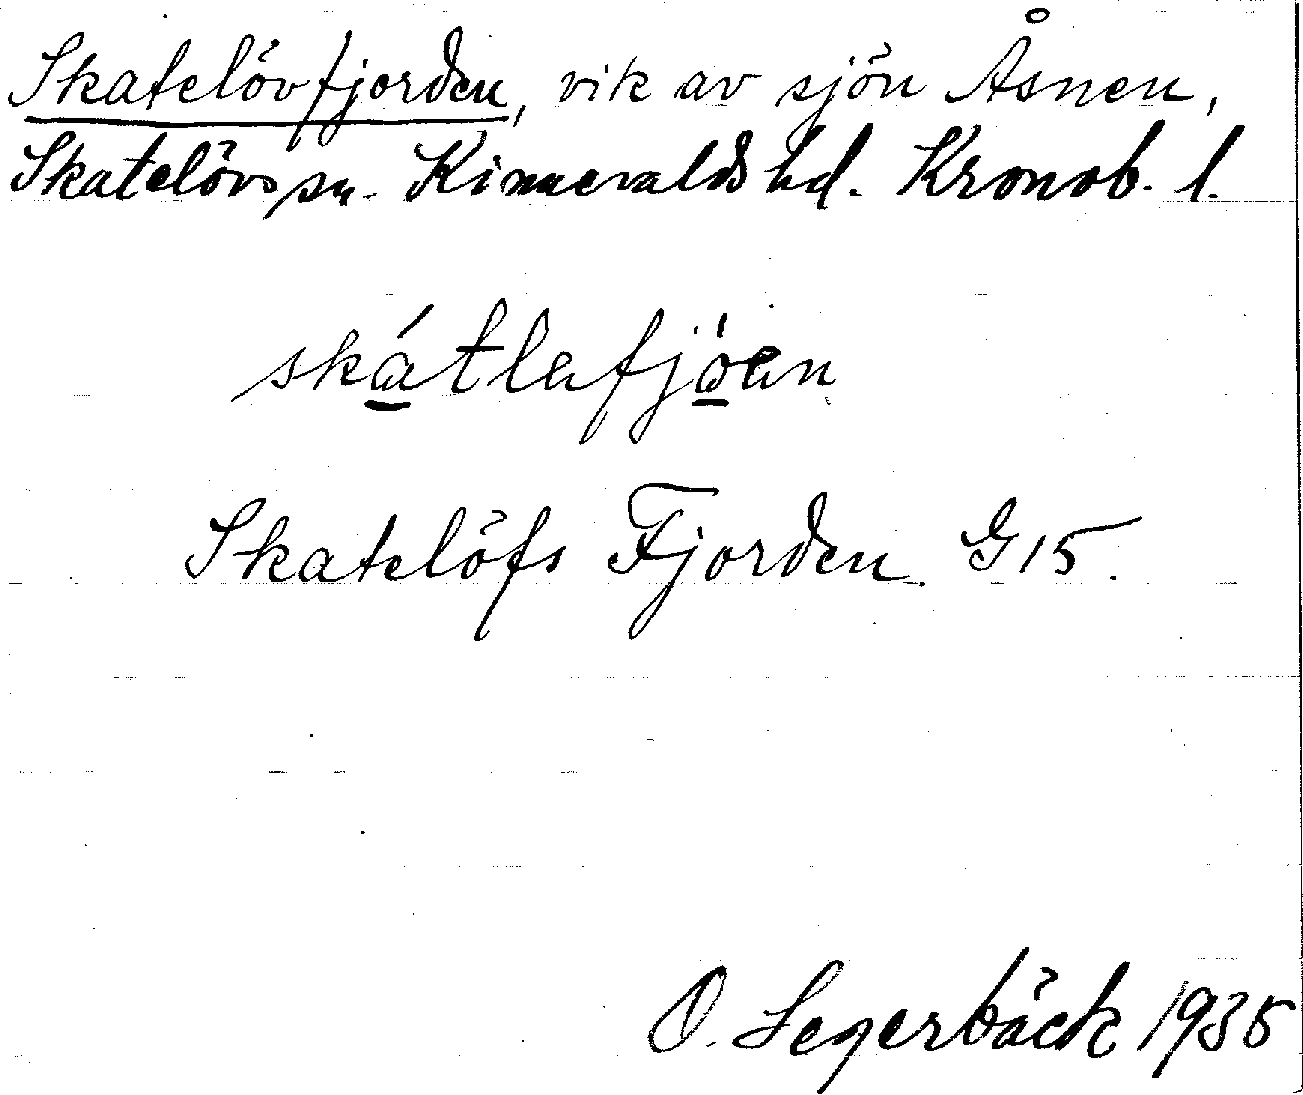 Skatelövfjorden, vik av sjön Åsnen,
Skatelövs sn. Kinnevalds hd. Kronob. l.
skátlafjöen
Skatelöfs Fjorden. G15.
O. Segerbäck 1935